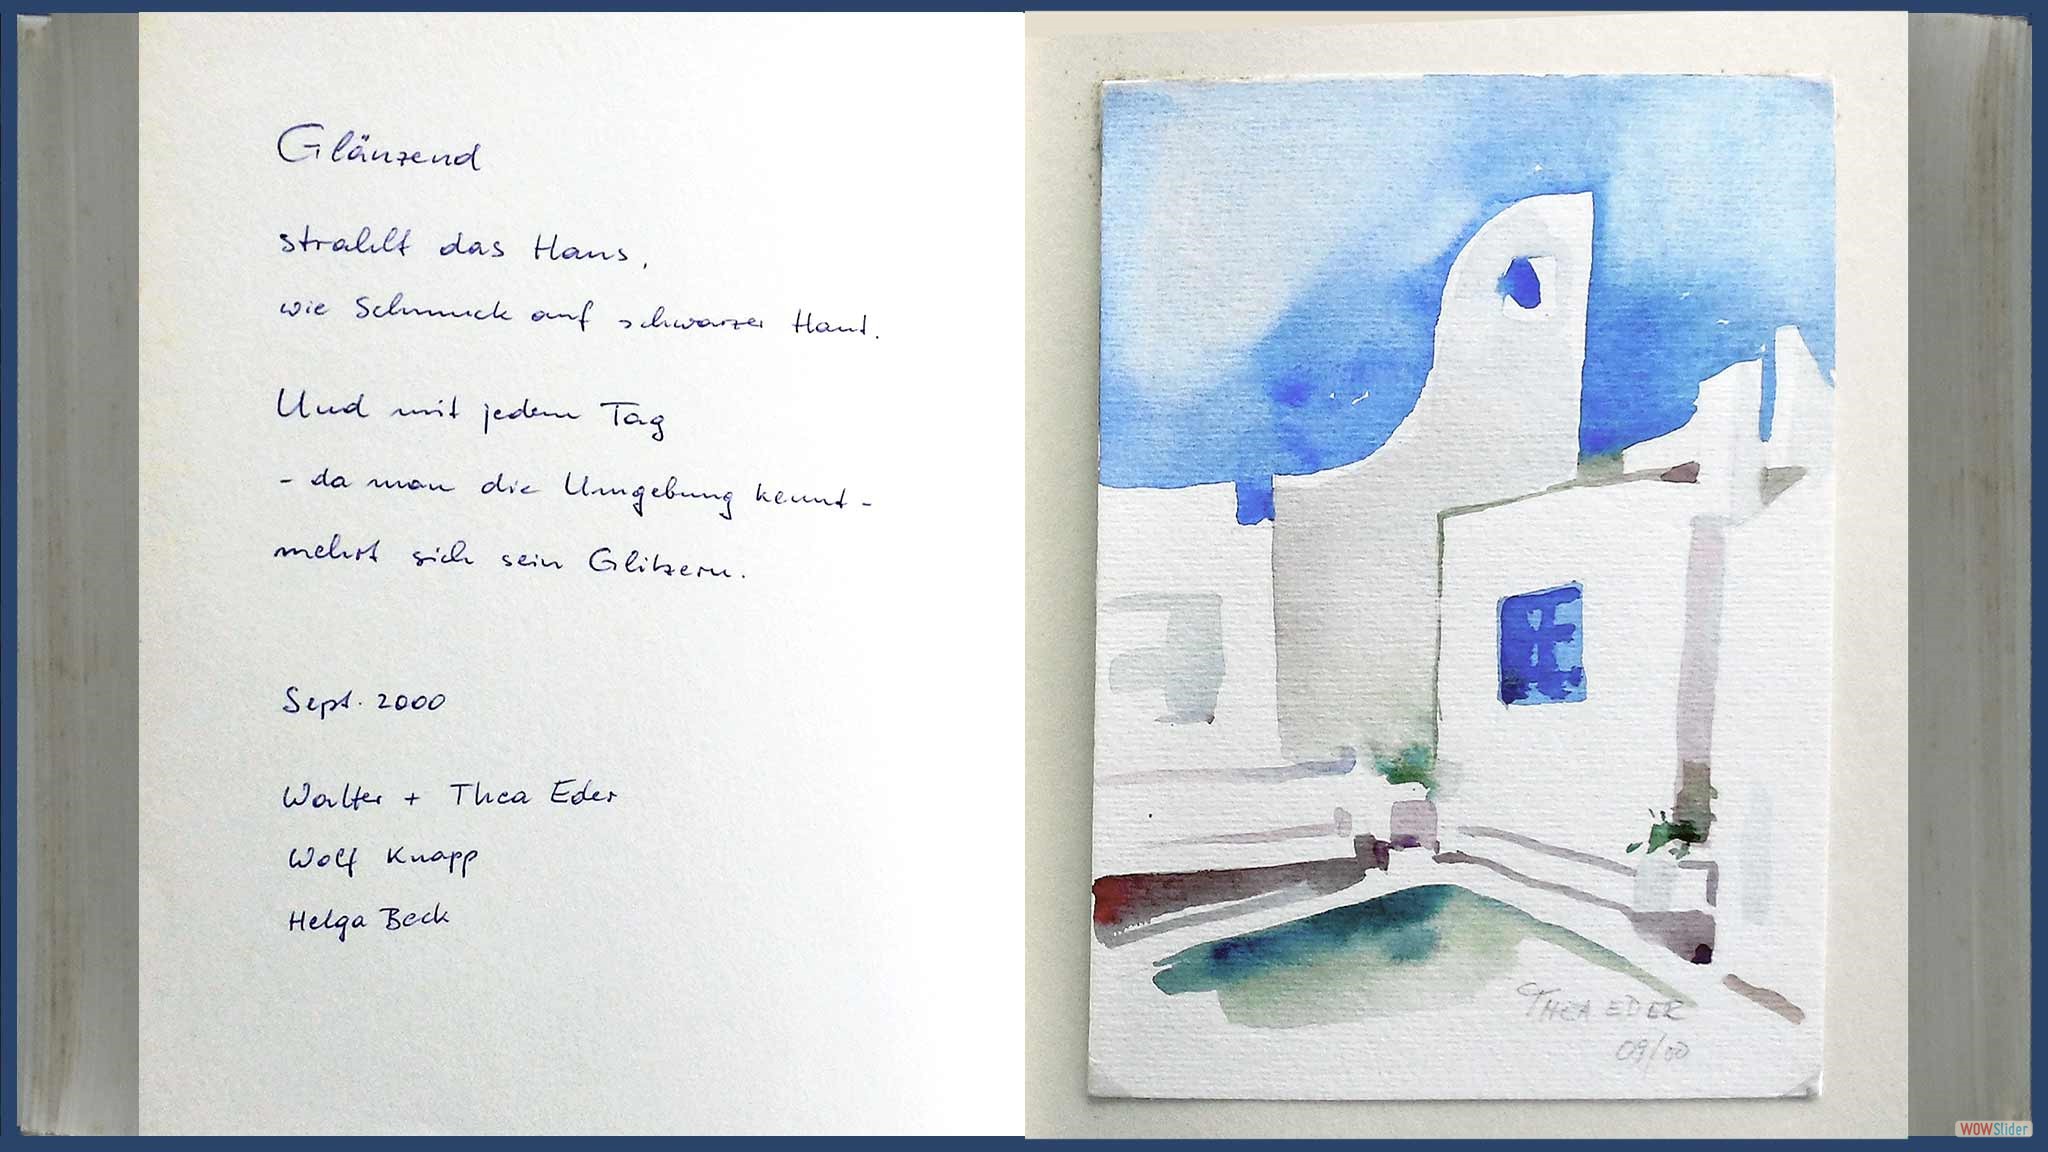 Glänzend
strahlt das Haus,
wie Schmuck auf schwarzer Haut.
Und mit jedem Tag
- da man die Umgebung kennt -
mehrt sich sein Glitzern.
Sept. 2000
Walter + Thea Eder
Wolf Knapp
Helga Beck
THEA EDER
09/00
WOWSlider